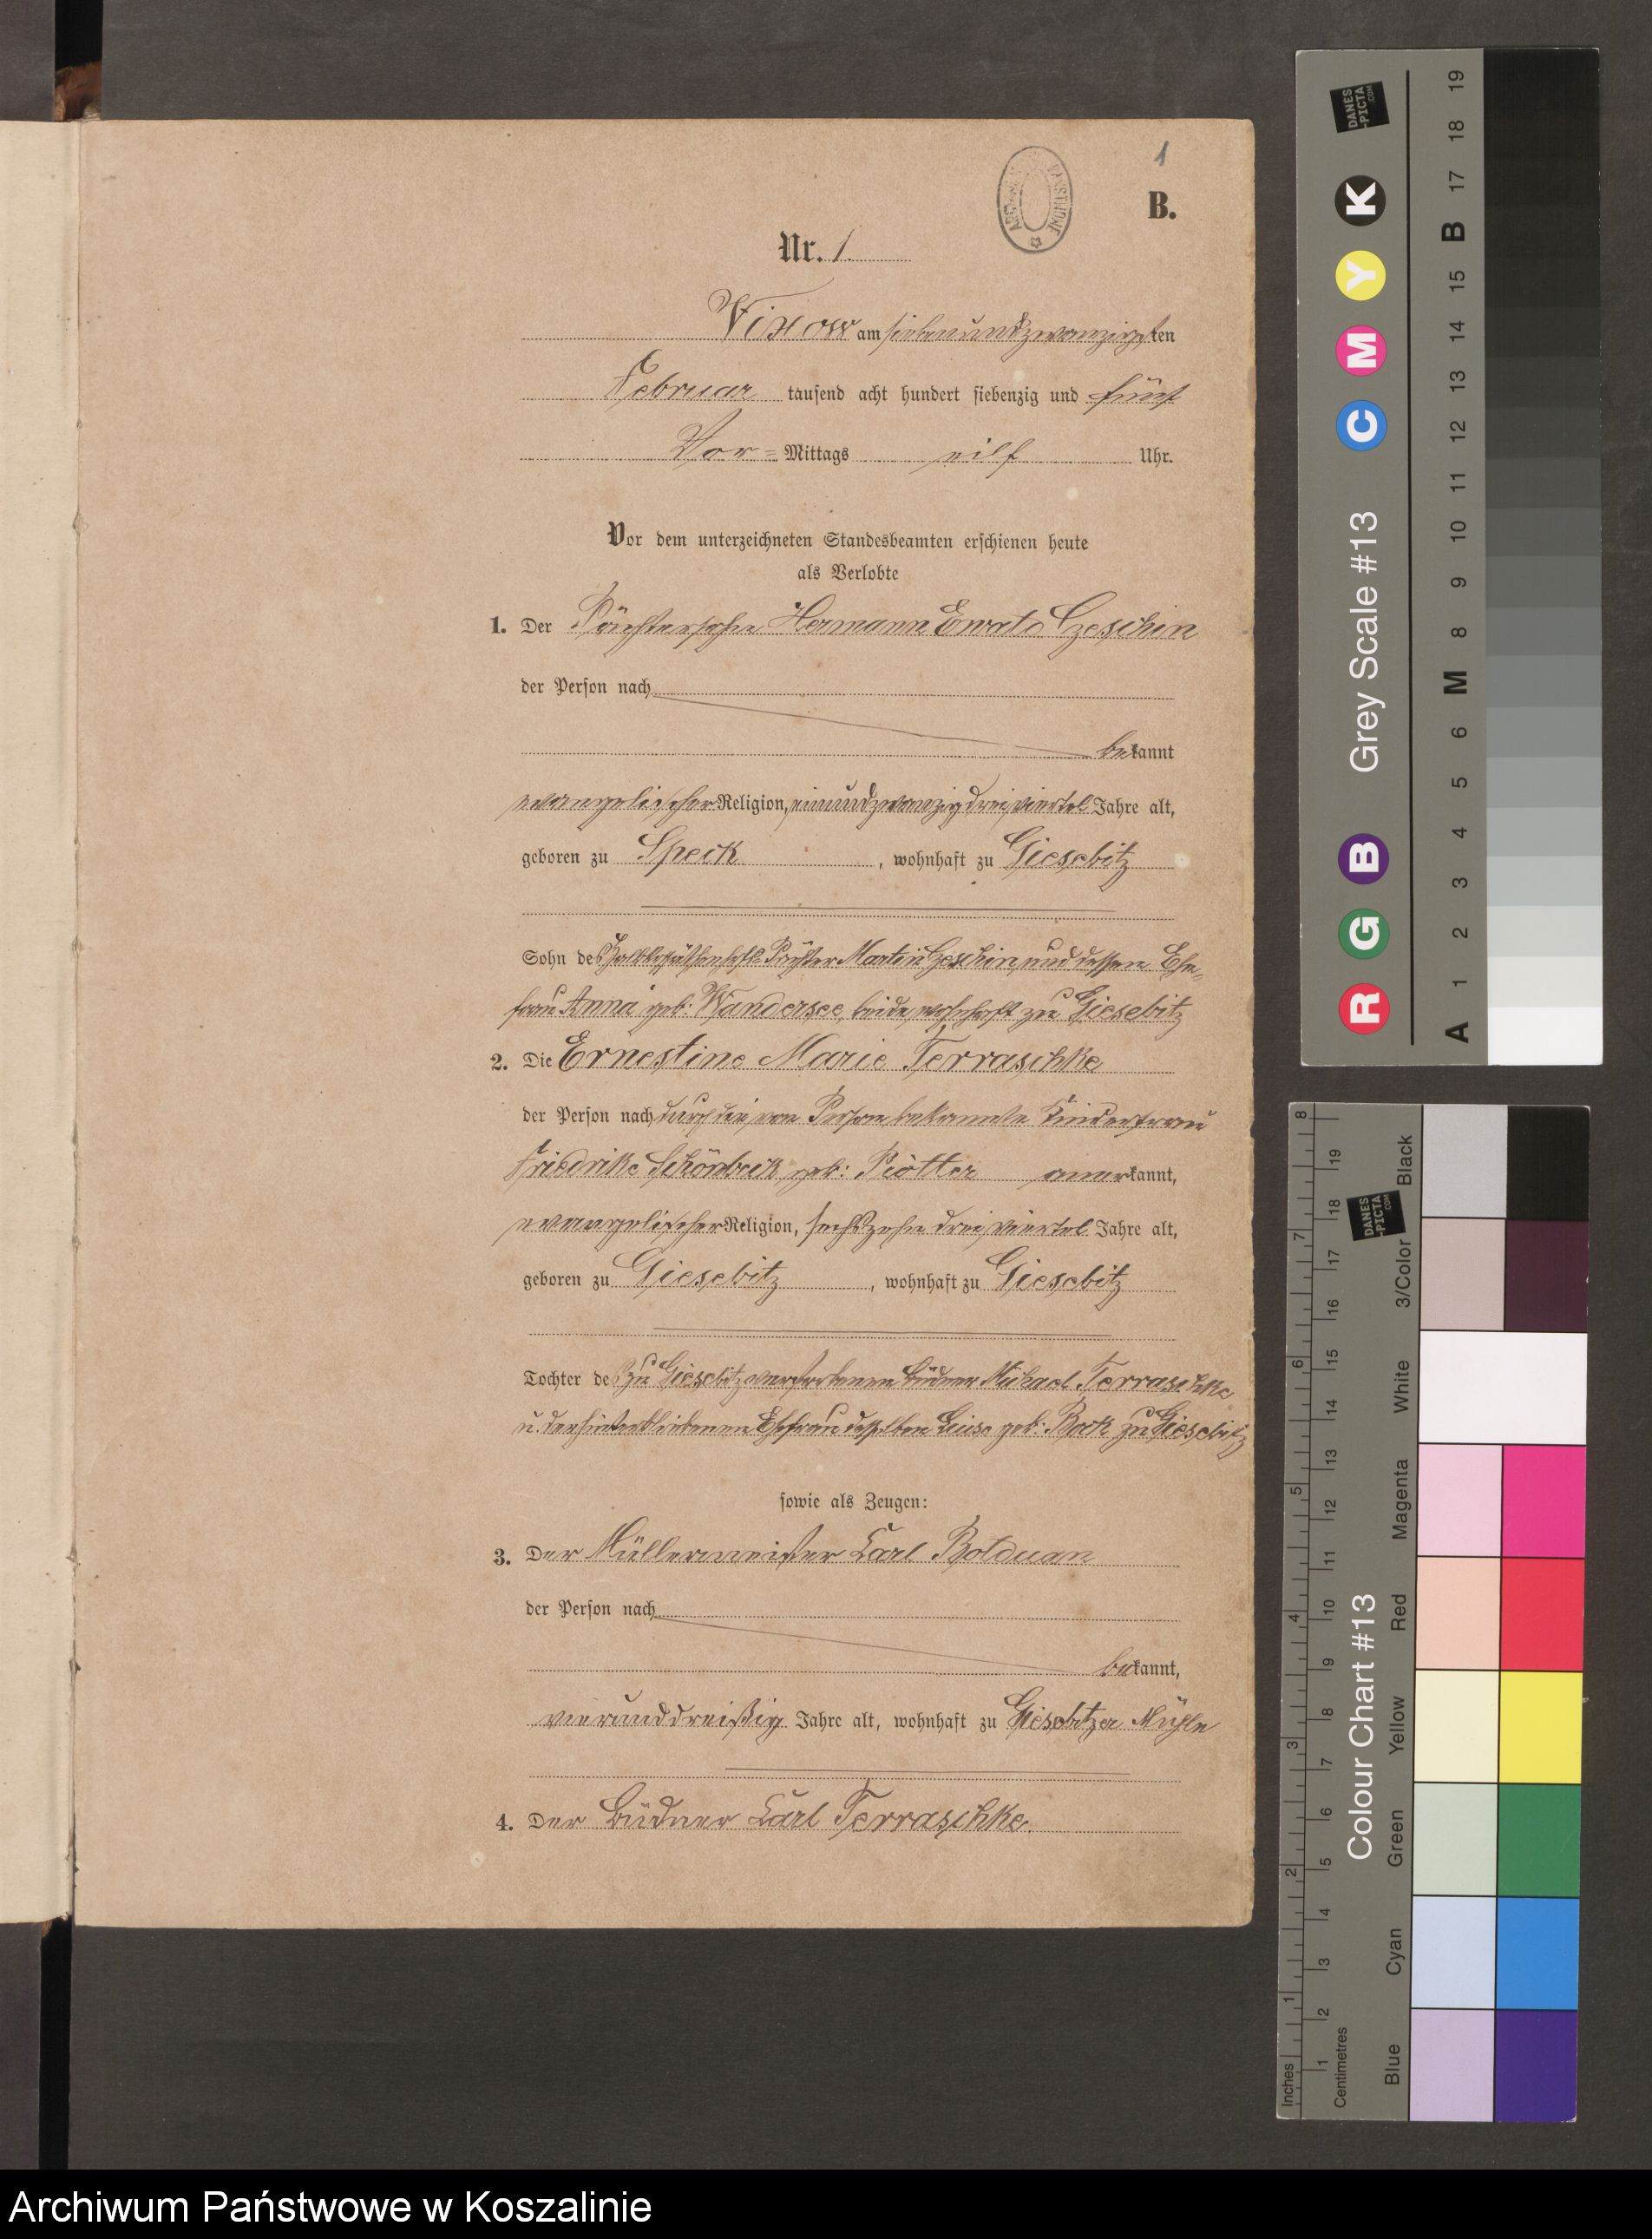 1
B.
ARCHIWUM PAŃSTWOWE
Nr. 1.
Vixow am siebenundzwanzigsten
Februar tausend acht hundert siebenzig und fünf
Vor= Mittags eilf Uhr.
Vor dem unterzeichneten Standesbeamten erschienen heute
als Verlobte
1. Der Pächtersohn Hermann Ewald Czeschin
der Person nach
bekannt
evangelischer Religion, einundzwanzig drei viertel Jahre alt,
geboren zu Speck, wohnhaft zu Giesebitz
Sohn des Pächter Martin Czeschin und dessen Ehe-
frau Anna geb: Wandersee, beide wohnhaft zu Giesebitz
2. Die Ernestine Marie Terraschke
der Person nach durch die von Person bekannte Kinderfrau
Friedrike Schönbeck geb: Piotter anerkannt,
evangelischer Religion, sechszehn drei viertel Jahre alt,
geboren zu Giesebitz, wohnhaft zu Giesebitz
Tochter des zu Giesebitz verstorbenen Büdner Michael Terraschke
u. der hinterbliebenen Ehefrau desselben Luise geb: Bock zu Giesebitz
sowie als Zeugen:
3. Der Müllermeister Carl Bolduan
der Person nach
bekannt,
vierunddreißig Jahre alt, wohnhaft zu Giesebitzer Mühle
4. Der Büdner Carl Terraschke.
DANES-PICTA.COM
Grey Scale #13
R G B C M Y K
A 1 2 3 4 5 6 M 8 9 10 11 12 13 14 15 B 17 18 19
DANES-PICTA.COM
Colour Chart #13
Blue Cyan Green Yellow Red Magenta White 3/Color Black
Inches 1 2 3 4 5 6 7 8
Centimetres 1 2 3 4 5 6 7 8 9 10 11 12 13 14 15 16 17 18 19
Archiwum Państwowe w Koszalinie